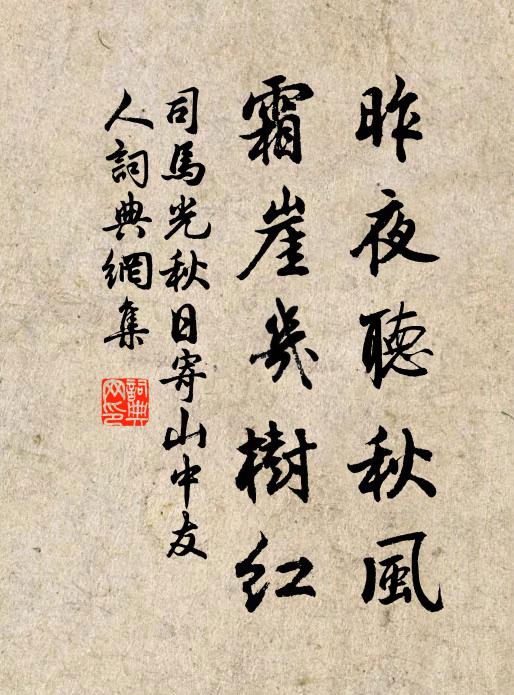 昨夜聽秋風
霜崖幾樹紅
司馬光秋日寄山中友
人詞典網集
詞典
网印